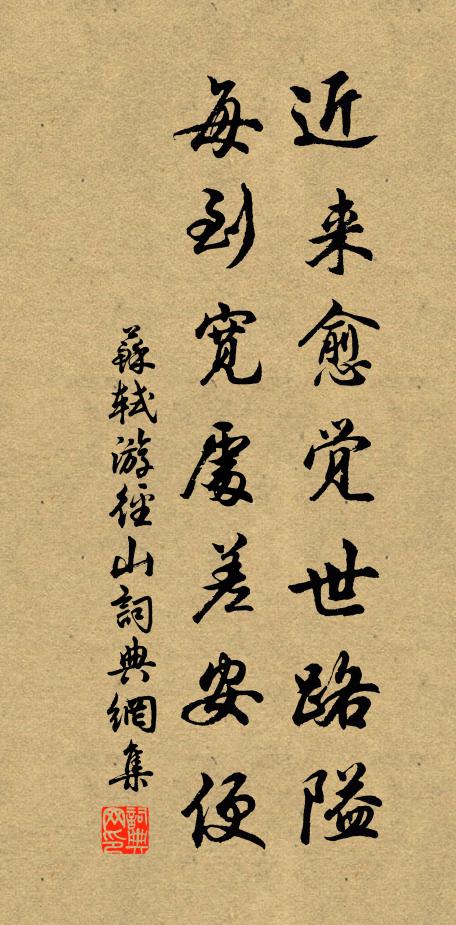 近来愈觉世路隘
每到宽處差安便
蘇軾游徑山詞典網集
詞典网印